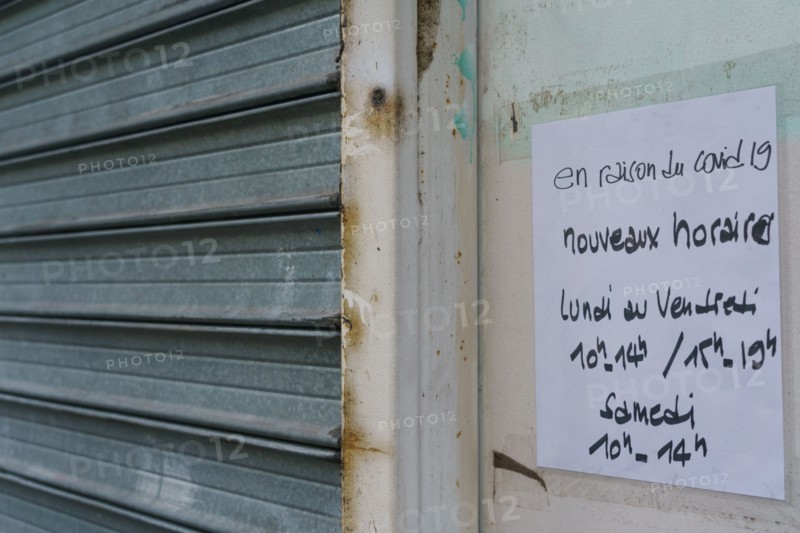 en raison du covid 19
nouveaux horaires
lundi au Vendredi
10h-14h / 15h-19h
Samedi
10h-14h
PHOTO12